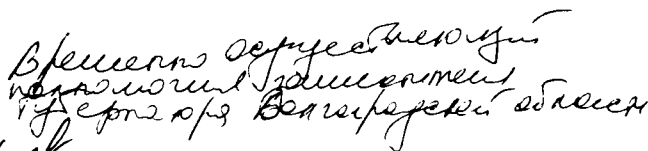 временно осуществляющий
полномочия заместителя
Губернатора Волгоградской области